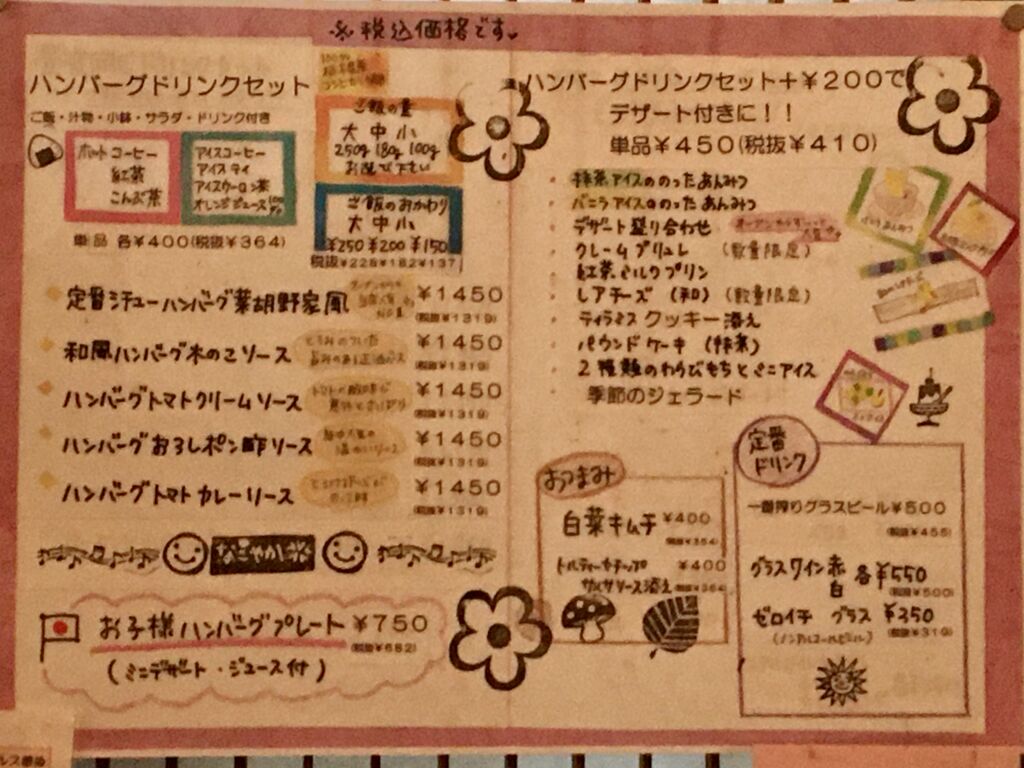 ※税込価格です。
ハンバーグドリンクセット
ご飯・汁物・小鉢・サラダ・ドリンク付き
ホットコーヒー
紅茶
こんぶ茶
アイスコーヒー
アイスティ
アイスウーロン茶
オレンジジュース100%
単品 各¥400(税抜¥364)
ご飯の量
大 中 小
250g 180g 100g
お選び下さい
ご飯のおかわり
大 中 小
¥250 ¥200 ¥150
税抜¥228¥182¥137
定番シチューハンバーグ葉胡野家風 ¥1450
(税抜¥1319)
和風ハンバーグ木のこソース ¥1450
(税抜¥1319)
ハンバーグトマトクリームソース ¥1450
(税抜¥1319)
ハンバーグおろしポン酢ソース ¥1450
(税抜¥1319)
ハンバーグトマトカレーソース ¥1450
(税抜¥1319)
お子様ハンバーグプレート ¥750
(税抜¥682)
(ミニデザート・ジュース付)
ハンバーグドリンクセット+¥200で
デザート付きに!!
単品¥450(税抜¥410)
・抹茶アイスののったあんみつ
・バニラアイスののったあんみつ
・デザート盛り合わせ
・クレームブリュレ (数量限定)
・紅茶ミルクプリン
・レアチーズ (和) (数量限定)
・ティラミス クッキー添え
・パウンドケーキ (抹茶)
・2種類のわらびもちとミニアイス
季節のジェラード
おつまみ
白菜キムチ ¥400
(税抜¥364)
トルティーヤチップ ¥400
サルサソース添え (税抜¥364)
定番
ドリンク
一番搾りグラスビール¥500
(税抜¥455)
グラスワイン赤 各¥550
白 (税抜¥500)
ゼロイチ グラス ¥350
(ノンアルコールビール) (税抜¥319)